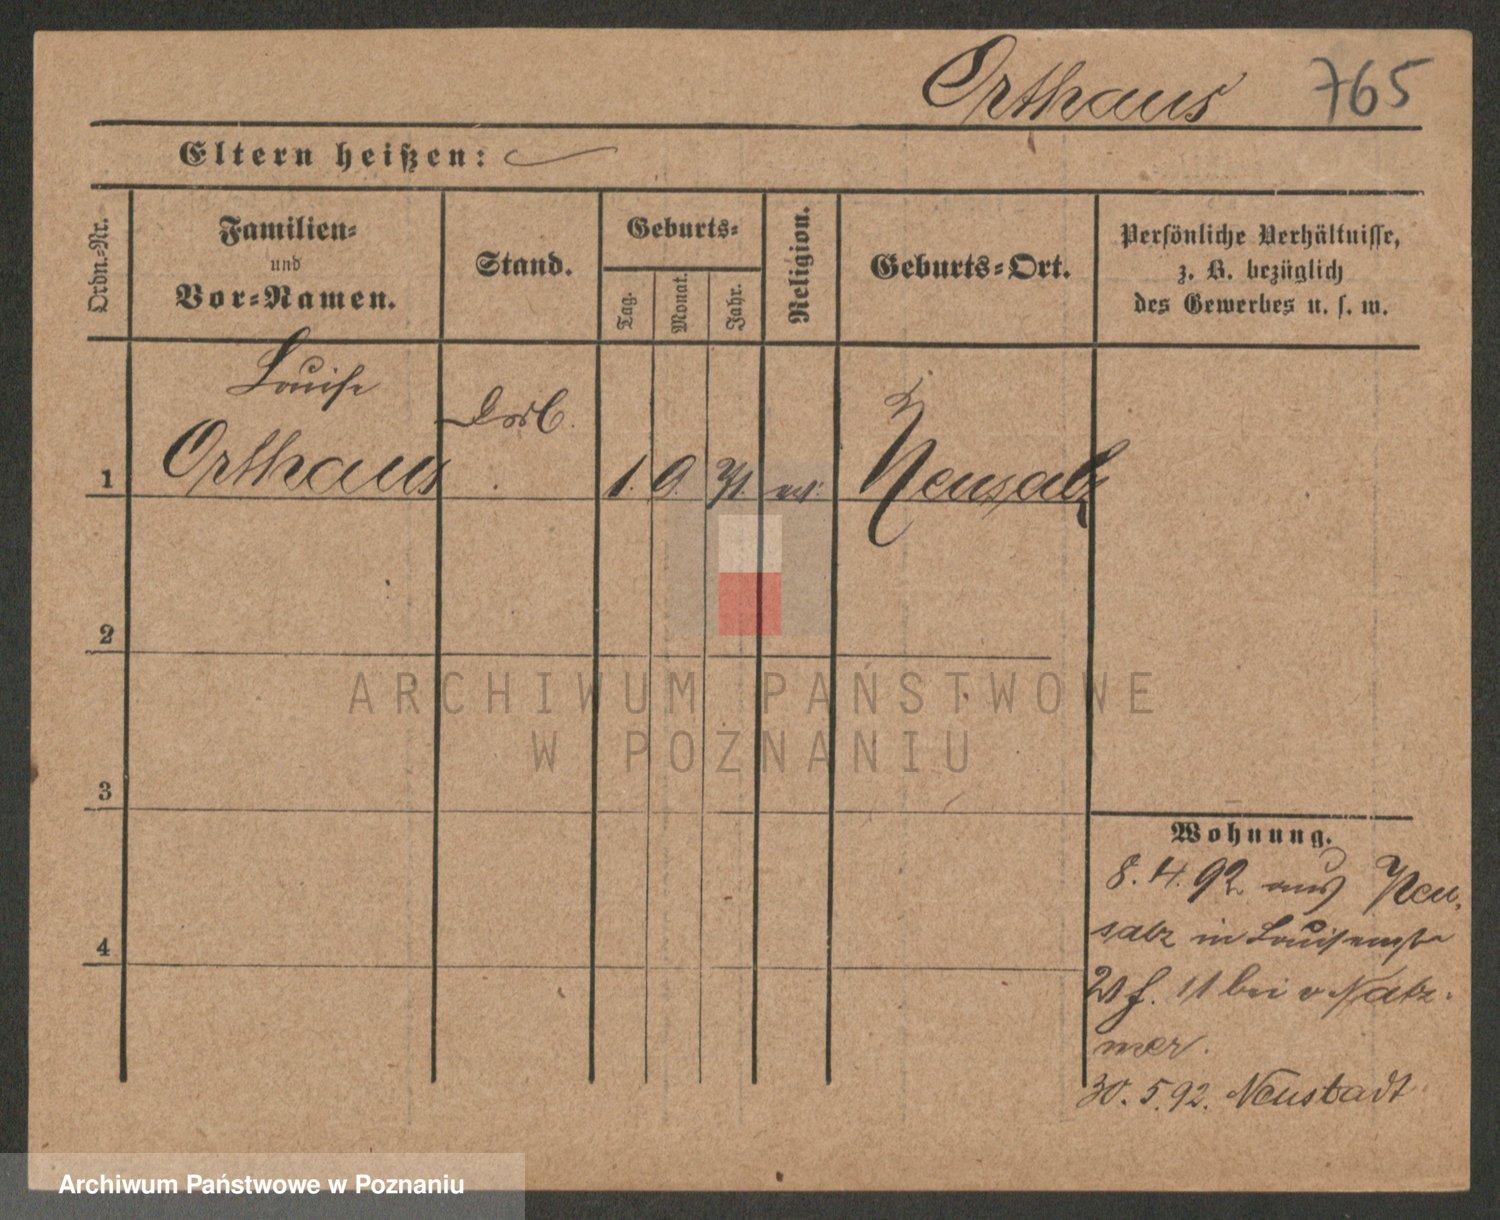 Orthaus 765
Eltern heißen:
Ordn.-Nr.
Familien-
und
Vor-Namen.
Stand.
Geburts-
Tag.
Monat.
Jahr.
Religion.
Geburts-Ort.
Persönliche Verhältnisse,
z. B. bezüglich
des Gewerbes u. s. w.
Louise
Orthaus
1
1. 9. 71. ev.
Neusalz
2
ARCHIWUM PAŃSTWOWE
W POZNANIU
3
Wohnung.
8. 4. 92 aus Neu-
salz in Louisenstr
11 bei v Natz-
mer.
4
30. 5. 92. Neustadt
Archiwum Państwowe w Poznaniu